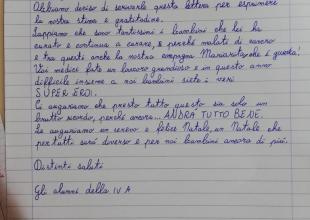 Abbiamo deciso di scriverle questa lettera per esprimere
la nostra stima e gratitudine.
Sappiamo che sono tantissimi i bambini che lei ha
curato e continua a curare, perché malati di cancro
e tra questi anche la nostra compagna Mariarita, che è guarita!
Voi medici fate un lavoro grandioso e in questo anno
difficile insieme a noi bambini siete i veri
SUPER EROI.
Ci auguriamo che presto tutto questo sia solo un
brutto ricordo, perché ancora... ANDRÀ TUTTO BENE.
Le auguriamo un sereno e felice Natale, un Natale che
per tutti sarà diverso e per noi bambini ancora di più.
Distinti saluti
Gli alunni della IV A